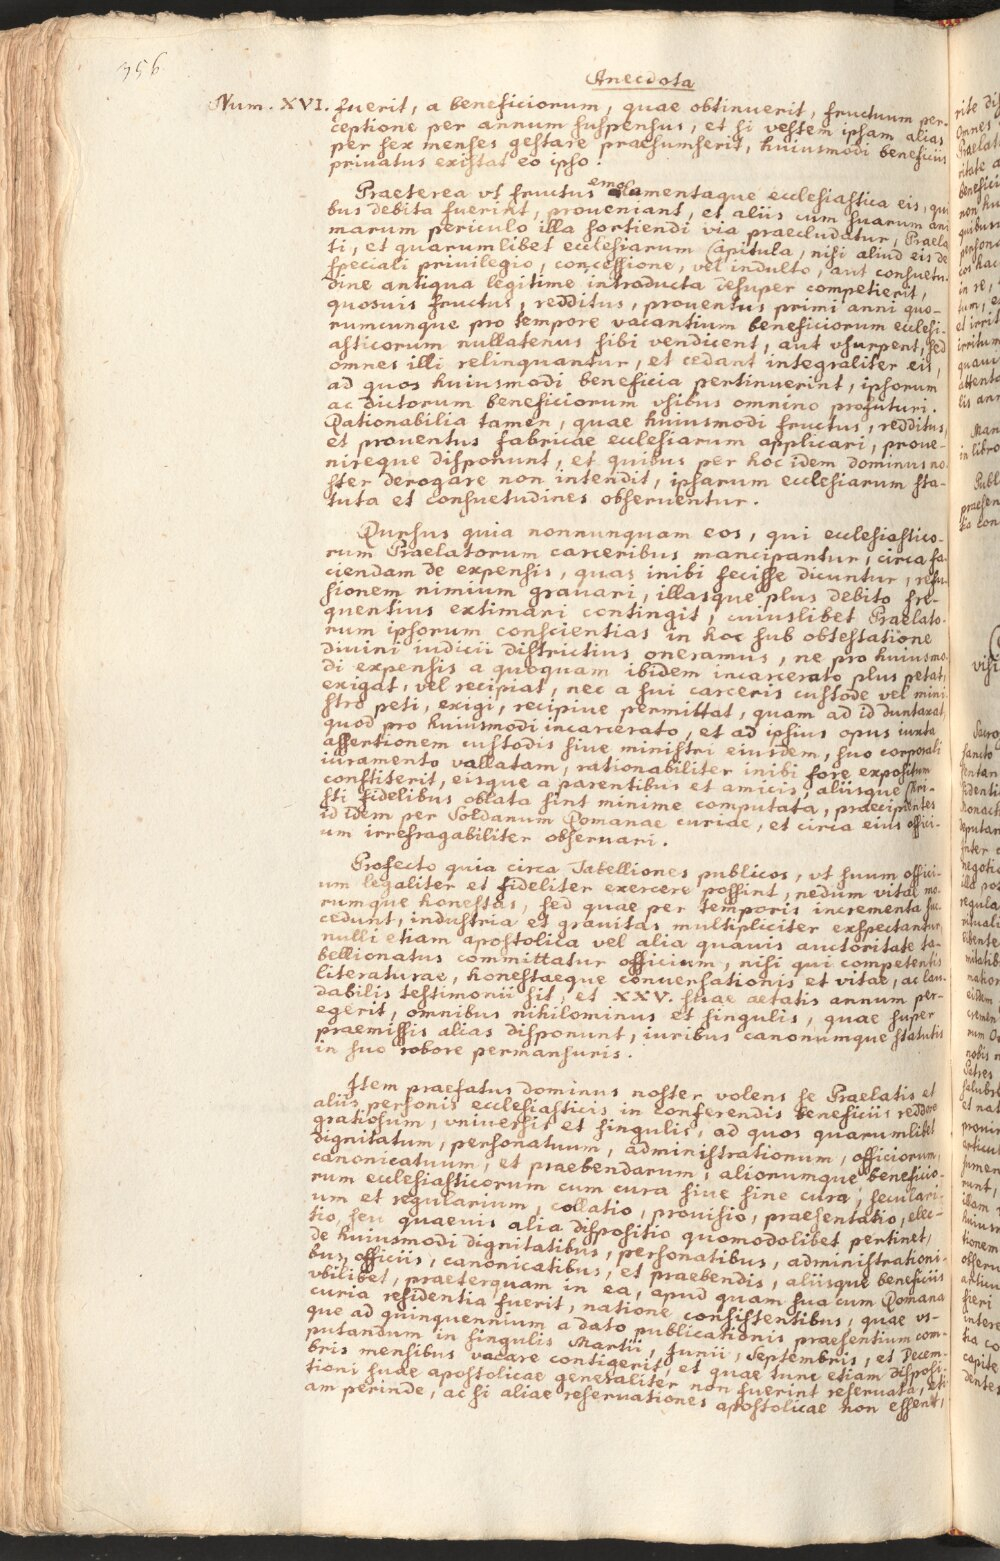 356
Anecdota
Num. XVI. fuerit, a beneficiorum, quae obtinuerit, fructuum per-
ceptione per annum suspensus, et si vestem ipsam alias
per sex menses gestare praesumserit, huiusmodi beneficiis
privatus existat eo ipso.
Praeterea vt fructus emolumentaque ecclesiastica eis, qui
bus debita fuerint, proueniant, et aliis cum suarum ani
marum periculo illa sortiendi via praecludatur, Praela
ti, et quarumlibet ecclesiarum Capitula, nisi aliud eis de
speciali privilegio, concessione, vel indulto, aut consuetu-
dine antiqua legitime introducta desuper competierit,
quosuis fructus, redditus, prouentus primi anni quo-
rumcunque pro tempore vacantium beneficiorum ecclesi-
asticorum nullatenus sibi vendicent, aut vsurpent, sed
omnes illi relinquantur, et cedant integraliter eis,
ad quos huiusmodi beneficia pertinuerint, ipsorum
ac dictorum beneficiorum vsibus omnino profuturi.
Rationabilia tamen, quae huiusmodi fructus, redditus,
et prouentus fabricae ecclesiarum applicari, proue-
nireque disponunt, et quibus per hoc idem dominus no-
ster derogare non intendit, ipsarum ecclesiarum sta-
tuta et consuetudines obseruentur.
Rursus quia nonnunquam eos, qui ecclesiastico-
rum Praelatorum carceribus mancipantur, circa fa-
ciendam de expensis, quas inibi fecisse dicuntur, refu-
sionem nimium grauari, illasque plus debito fre-
quentius extimari contingit, cuiuslibet Praelato-
rum ipsorum conscientias in hoc sub obtestatione
diuini iudicii districtius oneramus, ne pro huiusmo-
di expensis a quoquam ibidem incarcerato plus petat,
exigat, vel recipiat, nec a sui carceris custode vel mini
stro peti, exigi, recipiue permittat, quam ad id duntaxat,
quod pro huiusmodi incarcerato, et ad ipsius opus iuxta
assertionem custodis siue ministri eiusdem, suo corporali
iuramento vallatam, rationabiliter inibi fore expositum
constiterit, eisque a parentibus et amicis, aliisque Chri-
sti fidelibus oblata sint minime computata, praecipientes
id idem per Soldanum Romanae curiae, et circa eius offici-
um irrefragabiliter obseruari.
Profecto quia circa Tabelliones publicos, vt suum offici-
um legaliter et fideliter exercere possint, nedum vitae mo-
rumque honestas, sed quae per temporis incrementa suc-
cedunt, industria et grauitas multipliciter exspectantur,
nulli etiam apostolica vel alia quauis auctoritate ta-
bellionatus committatur officium, nisi qui competentis
literaturae, honestaeque conuersationis et vitae, ac lau-
dabilis testimonii sit, et XXV. suae aetatis annum per-
egerit, omnibus nihilominus et singulis, quae super
praemissis alias disponunt, iuribus canonumque statutis
in suo robore permansuris.
Item praefatus dominus noster volens se Praelatis et
aliis personis ecclesiasticis in conferendis beneficiis reddere
gratiosum, vniuersis et singulis, ad quos quarumlibet
dignitatum, personatuum, administrationum, officiorum,
canonicatuum, et praebendarum, aliorumque beneficio-
rum ecclesiasticorum cum cura siue sine cura, seculari-
um et regularium, collatio, prouisio, praesentatio, elec-
tio, seu quaeuis alia dispositio quomodolibet pertinet,
de huiusmodi dignitatibus, personatibus, administrationi-
bus, officiis, canonicatibus, et praebendis, aliisque beneficiis
vbilibet, praeterquam in ea, apud quam sua cum Romana
curia residentia fuerit, natione consistentibus, quae vs-
que ad quinquennium a dato publicationis praesentium com-
putandum in singulis Martii, Junii, Septembris, et Decem-
bris mensibus vacare contigerit, et quae tunc etiam disposi-
tioni suae apostolicae generaliter non fuerint reseruata, eti-
am perinde, ac si aliae reseruationes apostolicae non essent,